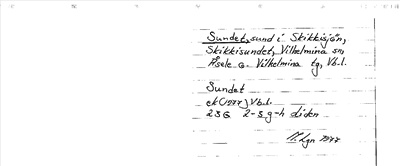 Sundet, sund i Skikkisjön,
Skikkisundet, Vilhelmina sn,
Åsele G. Vilhelmina tg, Vb.l.
Sundet
ek (1977) Vb.l.
23G 2-3 g-h
1977